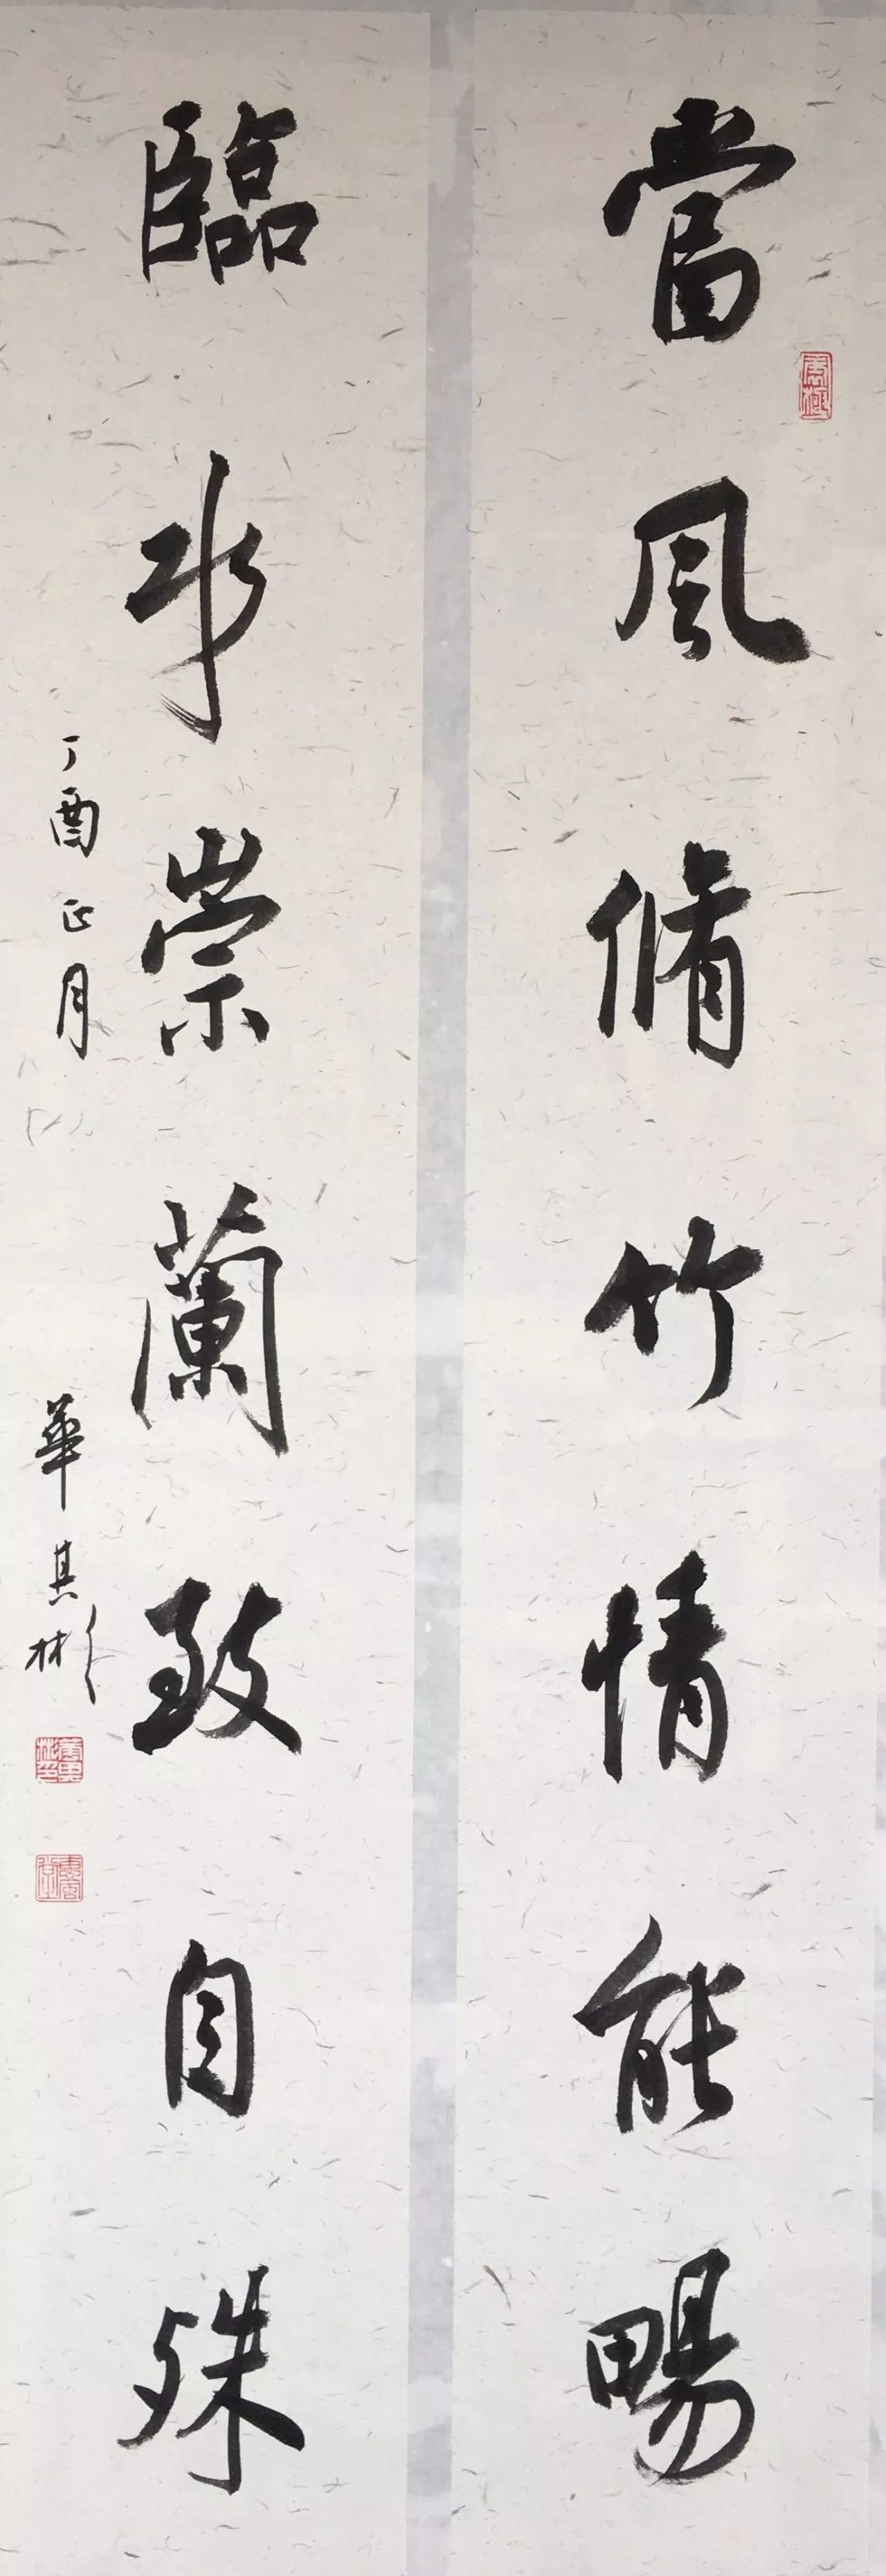 當風脩竹情能暢
臨水崇蘭致自殊
丁酉正月
華其彬